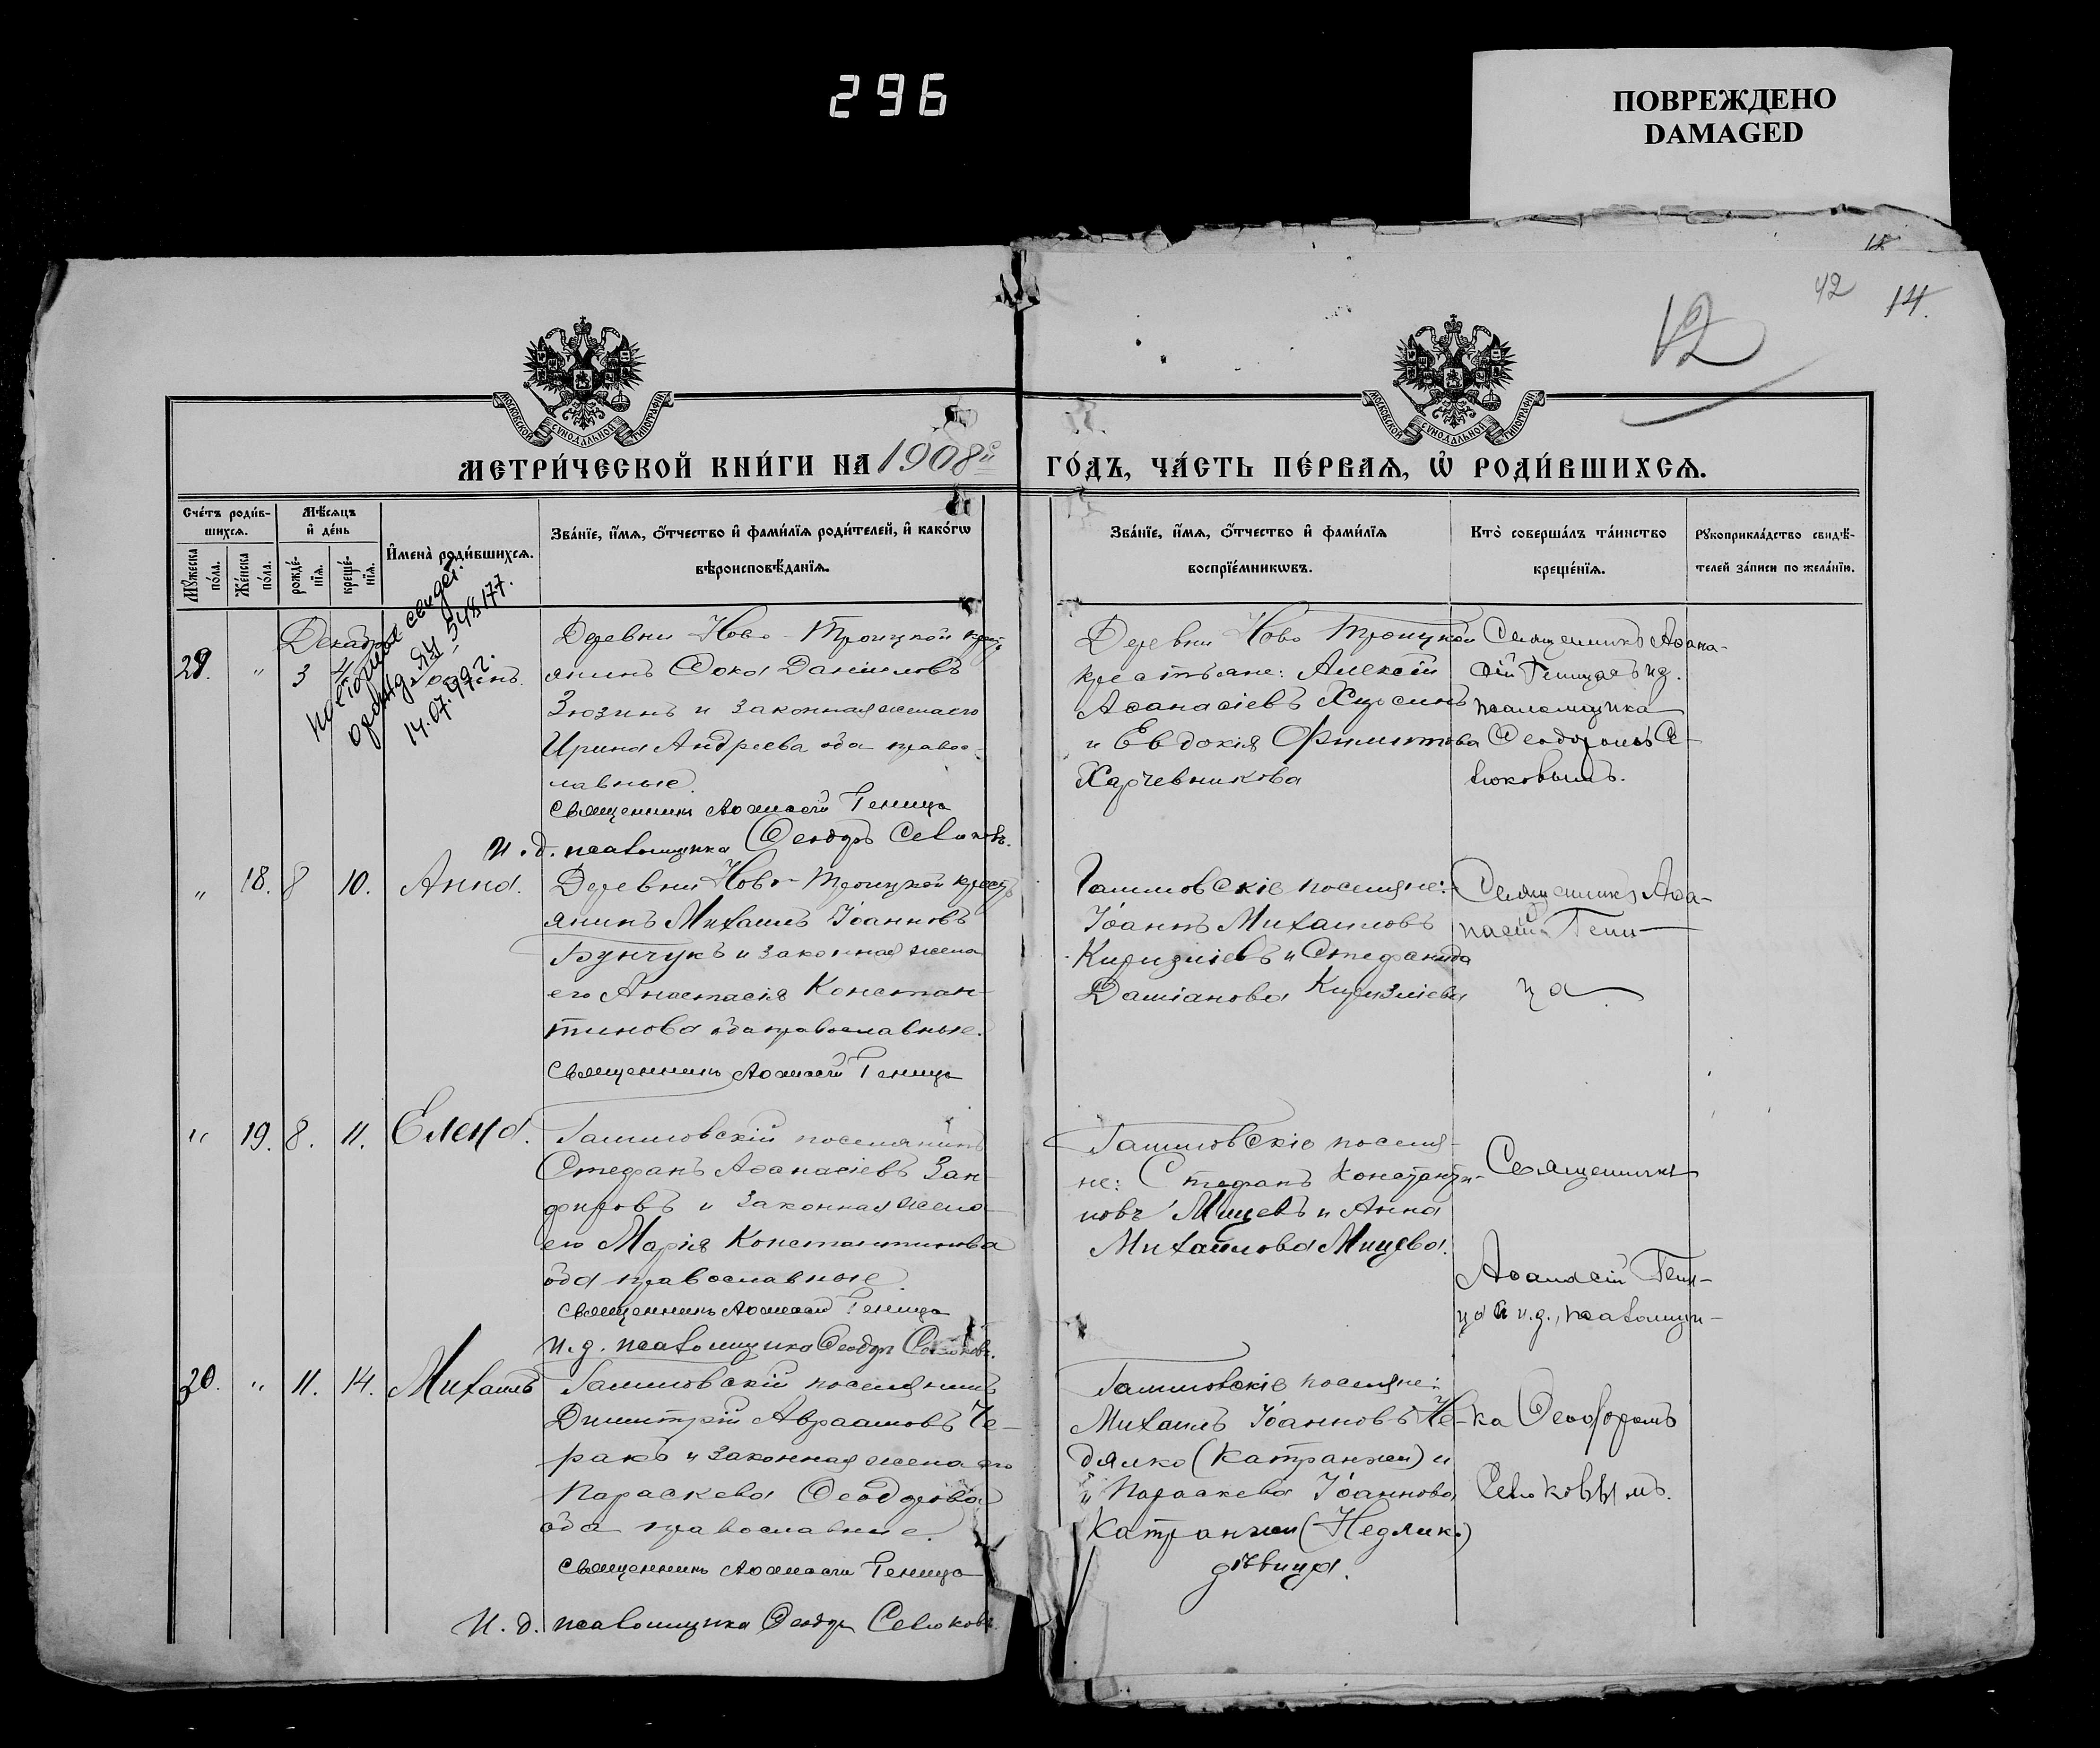 296
ПОВРЕЖДЕНО
DAMAGED
18
42
14.
12
МОСКОВСКОЙ СѴНОДАЛЬНОЙ ТИПОГРАФІИ
МОСКОВСКОЙ СѴНОДАЛЬНОЙ ТИПОГРАФІИ
МЕТРИ́ЧЕСКОЙ КНИ́ГИ НА 1908й
ГО́ДЪ, ЧА́СТЬ ПЕ́РВАѦ, Ѡ҆ РОДИ́ВШИХСѦ.
Сче́тъ роди́в-
шихсѧ.
Мꙋ́жеска по́ла.
Же́нска по́ла.
Мѣ́сѧцъ
и҆ де́нь
рожде́-
нїѧ.
креще́-
нїѧ.
И҆мена̀ роди́вшихсѧ.
Зва́нїе, и҆́мѧ, ѻ҆́тчество и҆ фами́лїѧ роди́телей, и҆ како́гѡ
вѣроисповѣ́данїѧ.
Зва́нїе, и҆́мѧ, ѻ҆́тчество и҆ фами́лїѧ
воспрїе́мникѡвъ.
Кто̀ соверша́лъ та́инство
креще́нїѧ.
Рꙋкоприкла́дство свидѣ́-
телей за́писи по жела́нїю.
Декабрь
29. " 3 4
14.07.49 г.
Деревни Ново-Троицкой крест-
янинъ Фока Даніиловъ
Зюзинъ и законная жена его
Ирина Андреева оба право-
лавные.
Священникъ Аѳанасій Геница
И. д. псаломщика Ѳеодоръ Севюковъ.
Деревни Ново Троицкой
крестьяне: Алексій
Аѳанасіевъ
и Евдокія
Харчевникова
Священникъ Аѳана-
сій Геница и и.д.
псаломщика
Ѳеодоромъ Се-
вюковымъ.
" 18. 8 10. Анна.
Деревни Ново-Троицкой крест-
янинъ Михаилъ Іоанновъ
Бунчукъ и законная жена
его Анастасія Констан-
тинова оба православные.
Священникъ Аѳанасій Геница
Іоаннъ Михаиловъ
Киризліевъ и Стефанида
Даміанова Киризліева
Священникъ Аѳа-
насій Гени-
ца
" 19. 8. 11. Елена.
поселянинъ
Стефанъ Аѳанасіевъ Зан-
фировъ и законная жена
его Марія Константинова
оба православные
Священникъ Аѳанасій Геница
И. д. псаломщика Ѳеодоръ Севюковъ.
поселя-
не: Стефанъ Константи-
новъ Мицевъ и Анна
Михайлова Мицева.
Священникъ
Аѳанасій Гени-
ца и и.д. псаломщи-
20. " 11. 14. Михаилъ
поселянинъ
Димитрій Авраамовъ Че-
ракъ и законная жена его
Параскева Ѳеодорова
оба православные.
Священникъ Аѳанасій Геница
И. д. псаломщика Ѳеодоръ Севюковъ.
поселяне:
Михаилъ Іоанновъ Не-
дялко (Катранжи) и
и Параскева Іоаннова
Катранжи (Недялк.)
дѣвица.
ка Ѳеодоромъ
Севюковымъ.